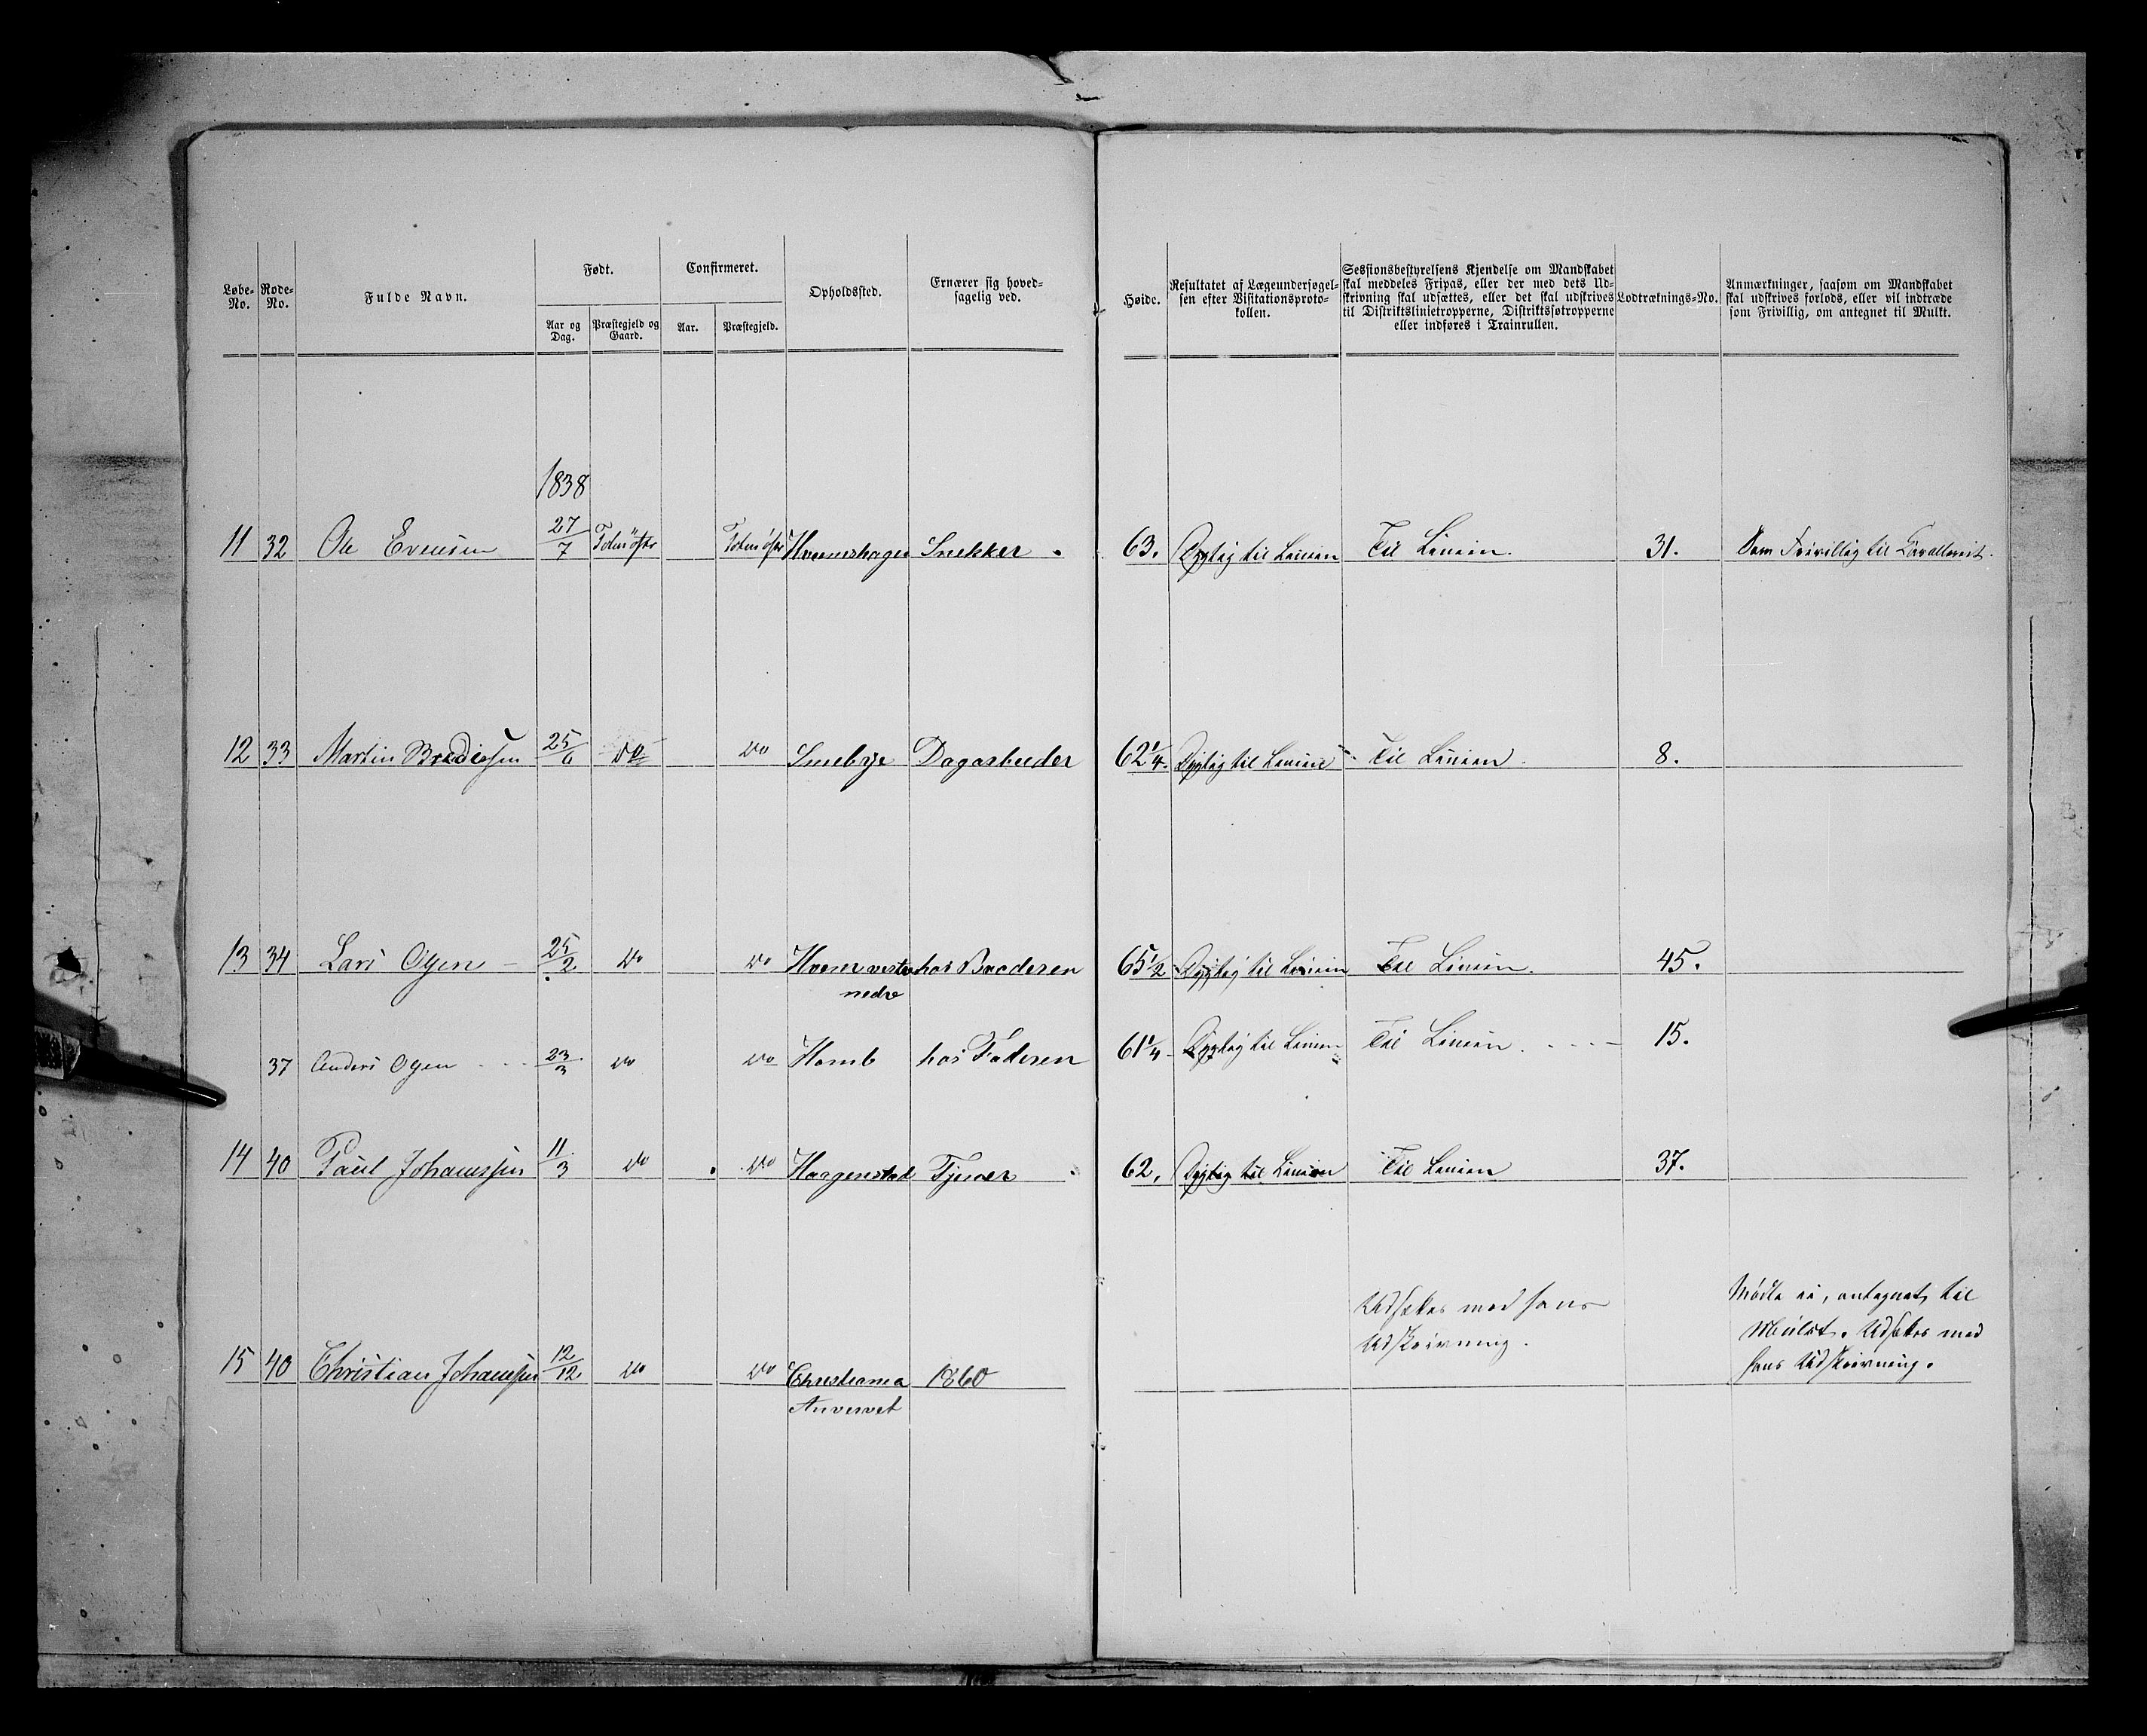 Løbe-No. Rode-No. Fulde Navn. Født. Aar og Dag. Præstegjeld og Gaard. Confirmeret. Aar. Præstegjeld. Opholdssted. Ernærer sig hovedsagelig ved.
Høide. Resultatet af Lægeundersøgelsen efter Visitationsprotokollen. Sessionsbestyrelsens Kjendelse om Mandskabet skal meddeles Fripas, eller der med dets Udskrivning skal udsættes, eller det skal udskrives til Distriktslinietropperne, Distriktssøtropperne eller indføres i Trainrullen. Lodtræknings-No. Anmærkninger, saasom om Mandskabet skal udskrives forlods, eller vil indtræde som Frivillig, om antegnet til Mulkt.
1838
11 32 Ole Evensen 27/7 Toten østr Toten østr Hveemshagen Snekker. 63. Dygtig til Linien Til Linien. 31. Som Frivillig til Cavalleriet.
12 33 Martin Bredessen 25/6 do do Smebye Dagarbeider 62 1/4. Dygtig til Linien Til Linien. 8.
13 34 Lars Olsen 25/2 do do Hvem vestre hos Broderen 65 1/2 Dygtig til Linien Til Linien. 45.
nedre
37 Anders Olsen 23/3 do do Homb hos Faderen 61 1/4 Dygtig til Linien Til Linien. 15.
14 40 Paul Johanssen 11/3 do do Haagenstad Tjener 62. Dygtig til Linien Til Linien 37.
15 40 Christian Johanssen 12/12 do do Christiania 1860 Udsættes med hans Udskrivning. Mødte ei, antegnet til Mulct. Udsættes med hans Udskrivning.